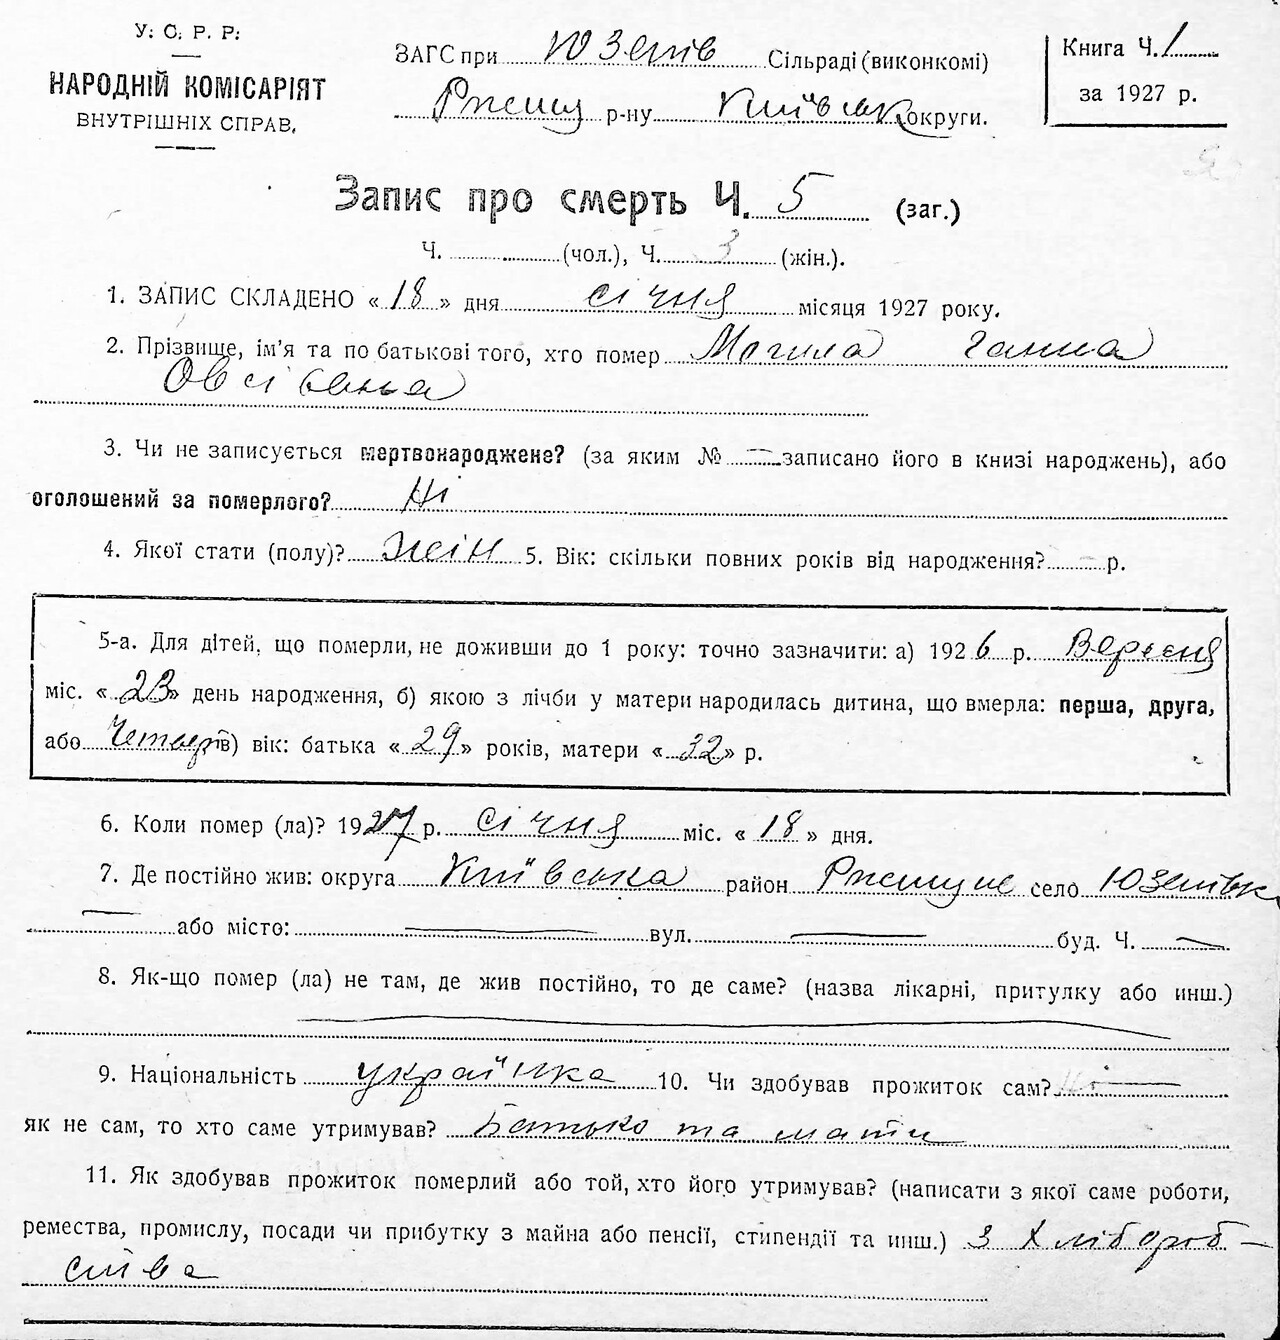 У: С: Р. Р:
НАРОДНІЙ КОМІСАРІЯТ
ВНУТРІШНІХ СПРАВ,
ЗАГС при Юзепів Сільраді (виконкомі)
Ржищ р-ну Київськ округи.
Книга Ч. 1
за 1927 р.
Запис про смерть Ч. 5 (заг.)
Ч. (чол.), Ч. 3 (жін.).
1. ЗАПИС СКЛАДЕНО « 18 » дня січня місяця 1927 року.
2. Прізвище, ім'я та по батькові того, хто помер Могила Ганна
Овсіївна
3. Чи не записується мертвонароджене? (за яким № — записано його в книзі народжень), або
оголошений за померлого? Ні
4. Якої стати (полу)? Жін 5. Вік: скільки повних років від народження? — р.
5-а. Для дітей, що померли, не доживши до 1 року: точно зазначити: а) 1926 р. Вересня
міс. « 23 » день народження, б) якою з лічби у матери народилась дитина, що вмерла: перша, друга,
або Четвер в) вік: батька « 29 » років, матери « 32 » р.
6. Коли помер (ла)? 1927 р. січня міс. « 18 » дня.
7. Де постійно жив: округа Київська район село Юзепівк
— або місто: — вул. — буд. Ч. —
8. Як-що помер (ла) не там, де жив постійно, то де саме? (назва лікарні, притулку або инш.)
9. Національність українка 10. Чи здобував прожиток сам? Ні —
як не сам, то хто саме утримував? Батько та мати
11. Як здобував прожиток померлий або той, хто його утримував? (написати з якої саме роботи,
ремества, промислу, посади чи прибутку з майна або пенсії, стипендії та инш.) З Хлібороб-
ства